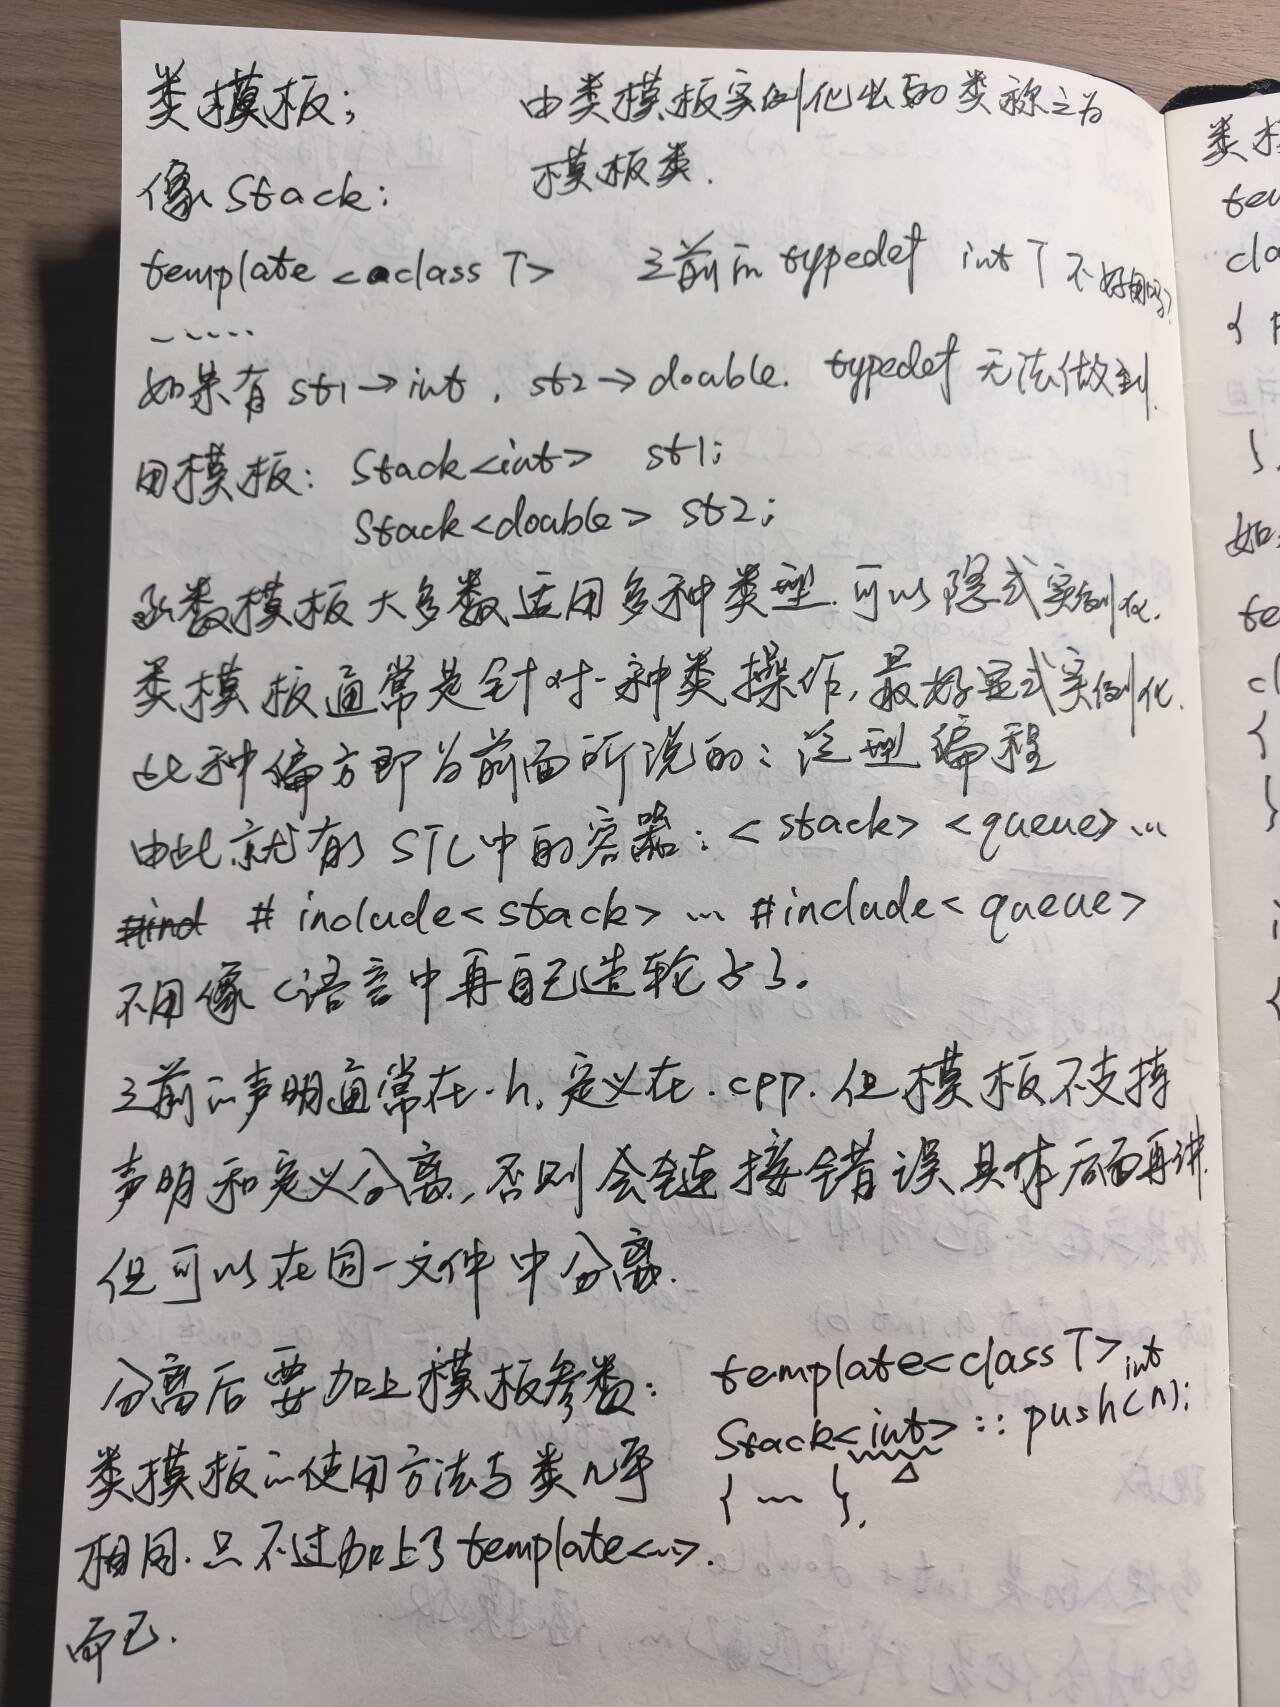 类模板; 由类模板实例化出的类称之为
模板类.
像Stack:
template <class T> 之前的 typedef int T 不好用吗?
......
如果有 st1→int, st2→double. typedef 无法做到.
用模板: Stack<int> st1;
Stack<double> st2;
函数模板大多数适用多种类型.可以隐式实例化.
类模板通常是针对一种类操作,最好显式实例化.
此种编方即为前面所说的:泛型编程
由此就有了STL中的容器:<stack> <queue>...
#include<stack> ... #include<queue>
不用像C语言中再自己造轮子了.
之前的声明通常在.h,定义在.cpp.但模板不支持
声明和定义分离,否则会链接错误具体后面再讲.
但可以在同一文件中分离.
分离后要加上模板参数: template<class T>
Stack<int>::push(int n);
{ ... }.
类模板的使用方法与类几乎
相同.只不过加上了template<...>.
而已.
类
tem
cla
{
}
如
te
cl
{
}
{